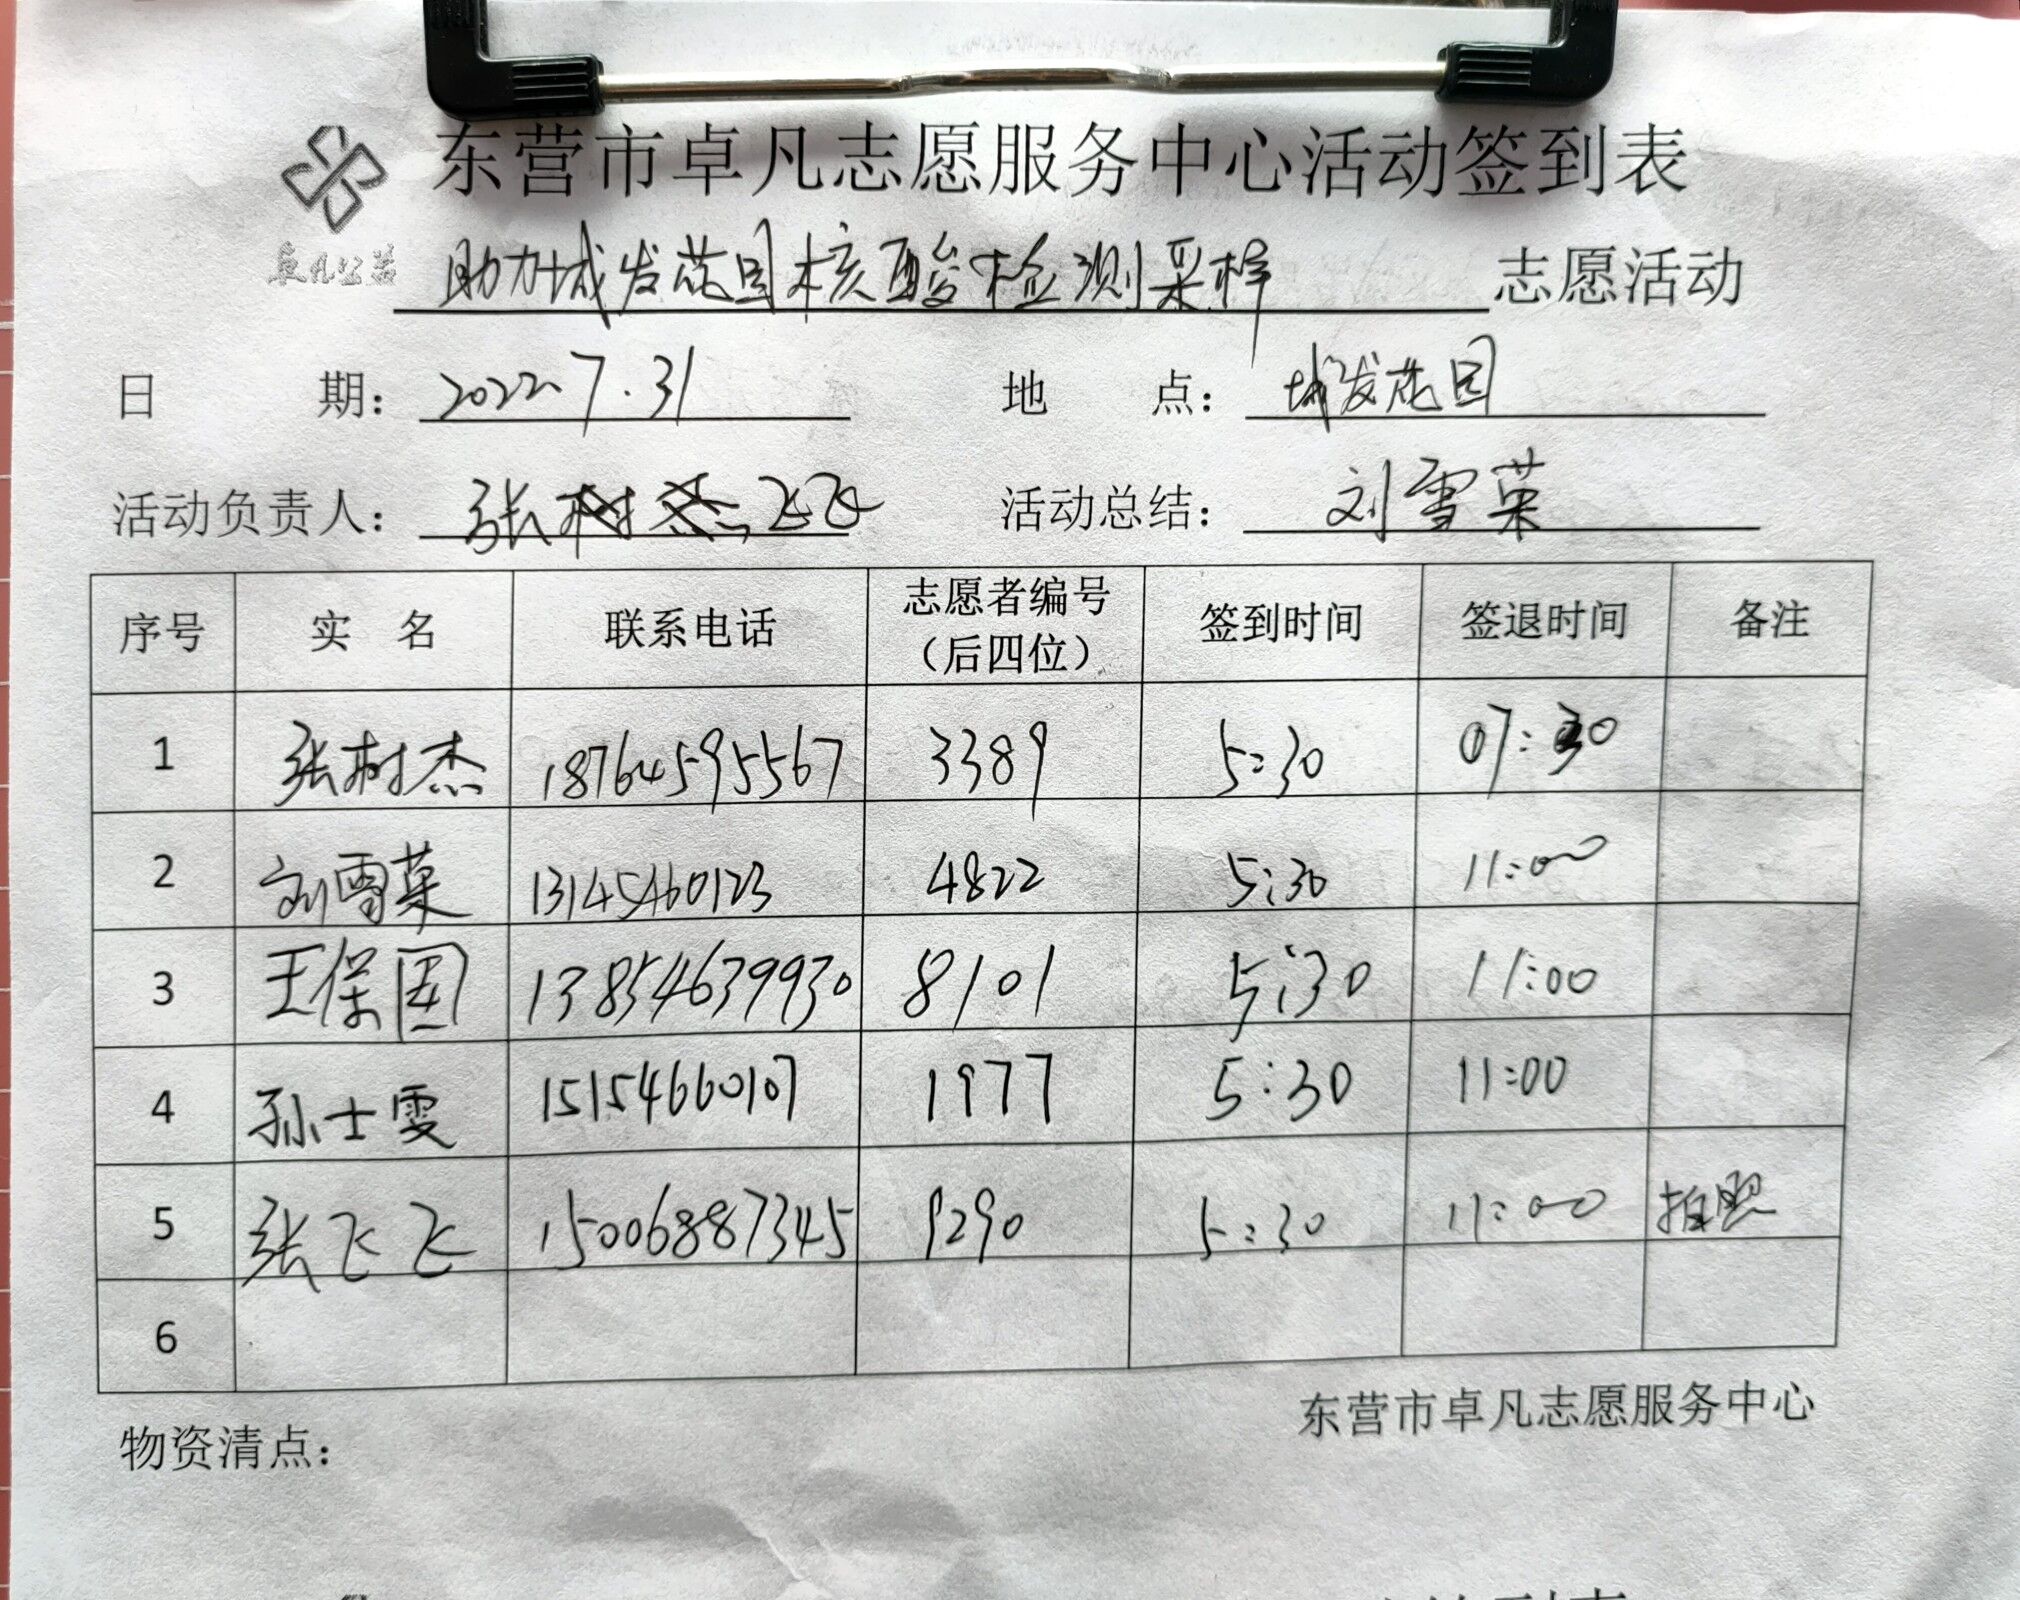 东营市卓凡志愿服务中心活动签到表
卓凡公益
助力城发花园核酸检测采样 志愿活动
日 期: 2022.7.31 地 点: 城发花园
活动负责人: 张树杰飞飞 活动总结: 刘雪莱
序号 实 名 联系电话 志愿者编号(后四位) 签到时间 签退时间 备注
1 张树杰 18764595567 3389 5:30 07:30
2 刘雪莱 13145460123 4822 5:30 11:00
3 王保国 13854639930 8101 5:30 11:00
4 孙士雯 15154660107 1977 5:30 11:00
5 张飞飞 15006887345 9290 5:30 11:00 拍照
6
东营市卓凡志愿服务中心
物资清点: